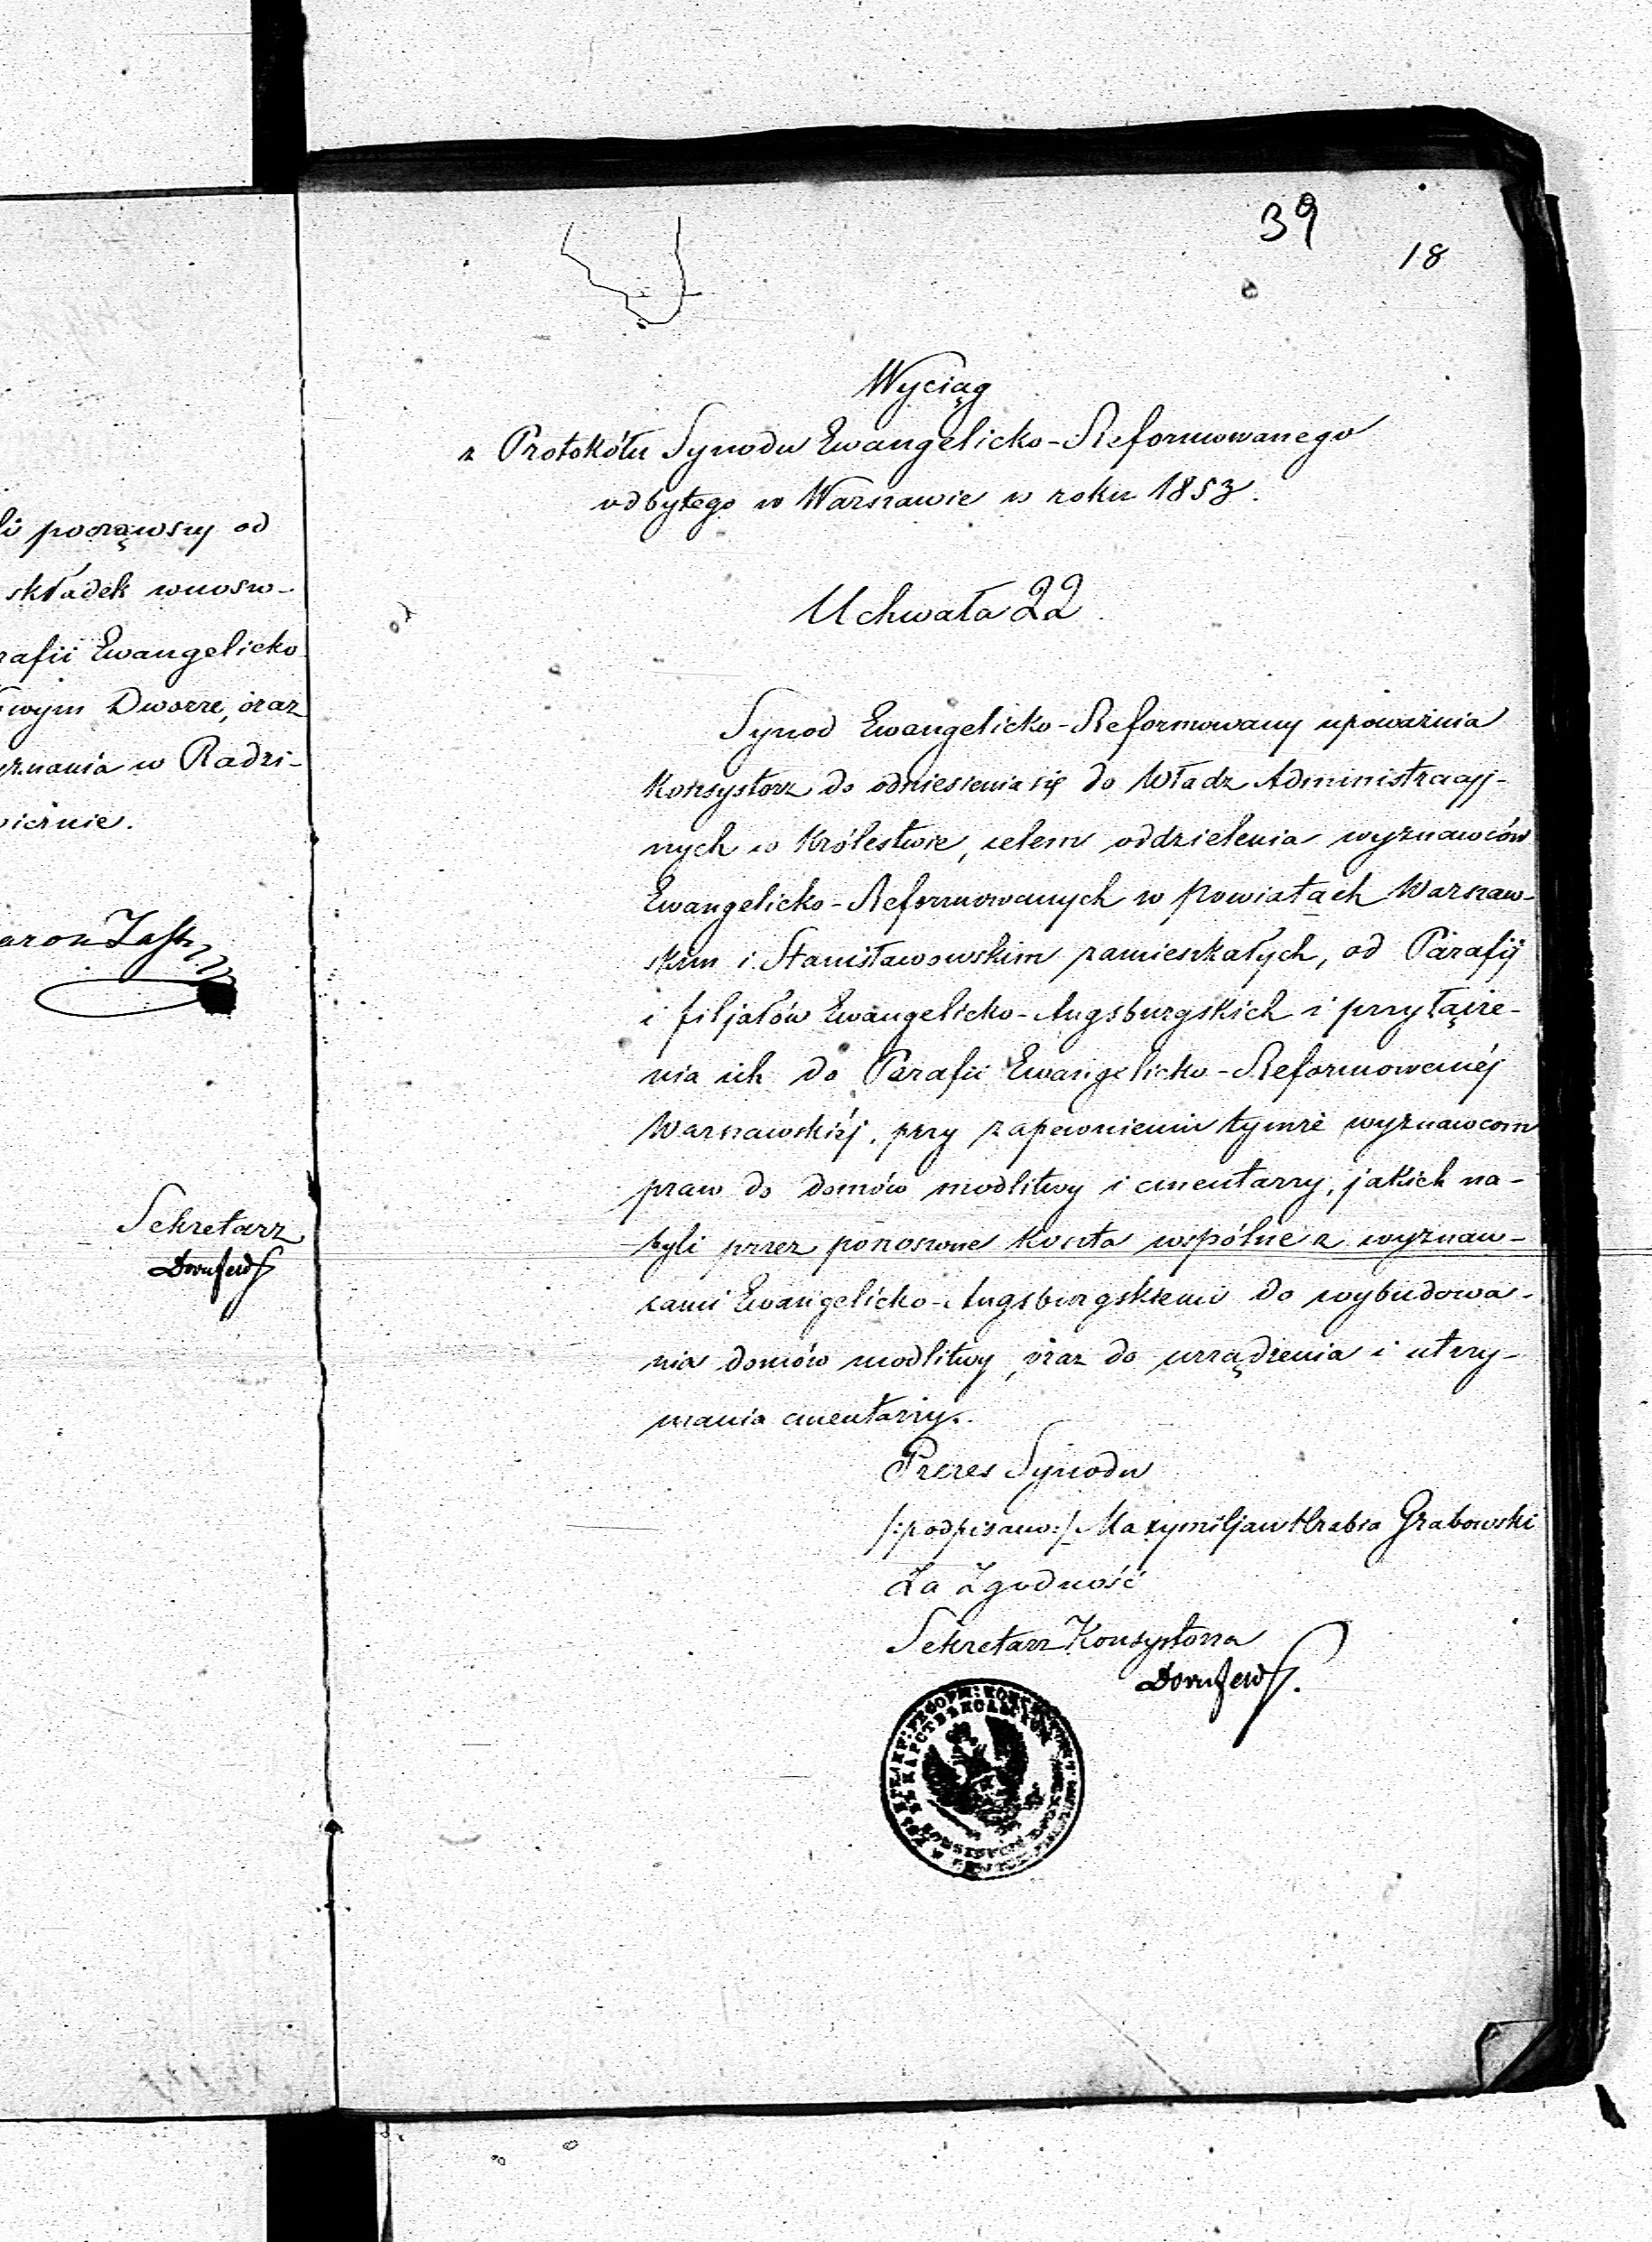 li począwszy od
składek wnoszo-
rafii Ewangelicko
wym Dworze, oraz
yznania w Radzi-
Sekretarz
39
18
Wyciąg
z Protokółu Synodu Ewangelicko-Reformowanego
odbytego w Warszawie w roku 1853.
Uchwała 22
Synod Ewangelicko-Reformowany upoważnia
Konsystorz do odniesienia się do Władz Administracyj-
nych w Królestwie, celem oddzielenia wyznawców
Ewangelicko-Reformowanych w powiatach Warszaw-
skim i Stanisławowskim zamieszkałych, od Parafij
i filjałów Ewangelicko-Augsburgskich i przyłącze-
nia ich do Parafii Ewangelicko-Reformowanéj
Warszawskiéj, przy zapewnieniu tymże wyznawcom
praw do domów modlitwy i cmentarzy, jakich na-
byli przez ponoszone koszta wspólne z wyznaw-
cami Ewangelicko-Augsburgskiemi do wybudowa-
nia domów modlitwy, oraz do urządzenia i utrzy-
mania cmentarzy.
Prezes Synodu
/:podpisano:/ Maxymiljan Hrabia Grabowski
Za Zgodność
Sekretarz Konsystorza